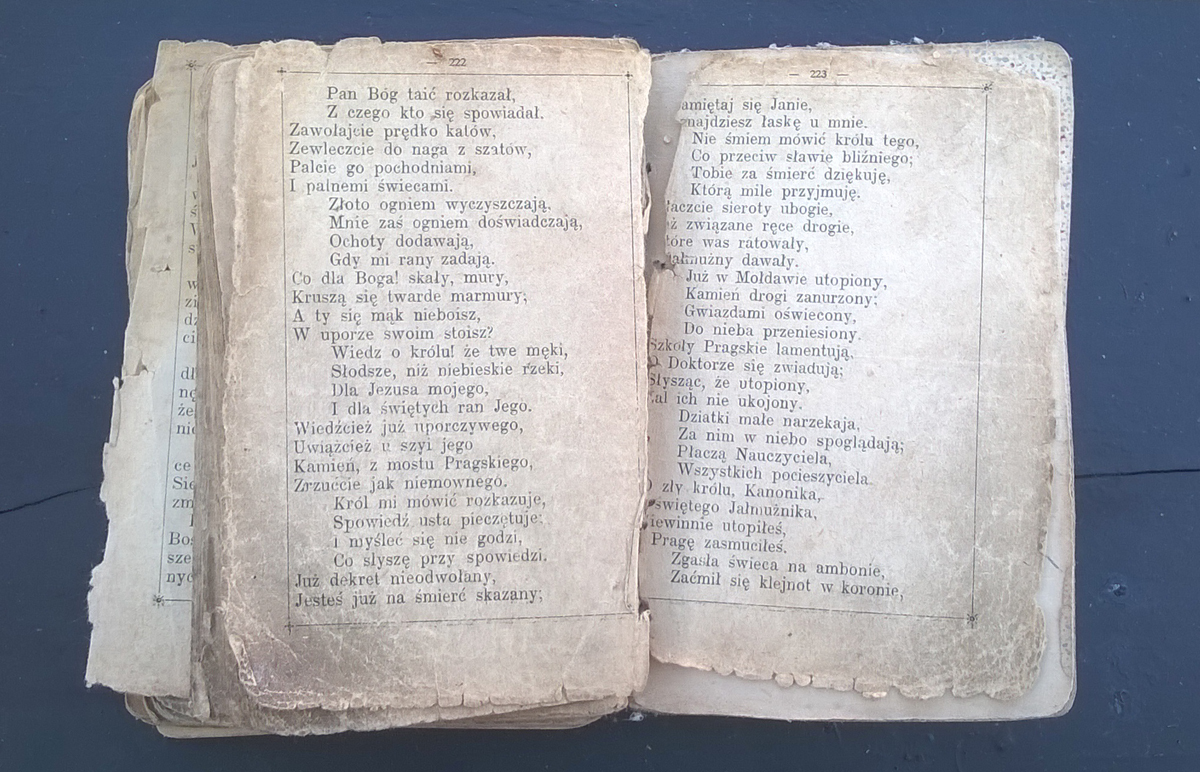 — 222
Pan Bóg taić rozkazał,
Z czego kto się spowiadał.
Zawołajcie prędko katów,
Zewleczcie do naga z szatów,
Palcie go pochodniami,
I palnemi świecami.
Złoto ogniem wyczyszczają,
Mnie zaś ogniem doświadczają,
Ochoty dodawają,
Gdy mi rany zadają.
Co dla Boga! skały, mury,
Kruszą się twarde marmury;
A ty się mąk nieboisz,
W uporze swoim stoisz?
Wiedz o królu! że twe męki,
Słodsze, niż niebieskie rzeki,
Dla Jezusa mojego,
I dla świętych ran Jego.
Wiedźcież już uporczywego,
Uwiążcież u szyi jego
Kamień, z mostu Pragskiego,
Zrzućcie jak niemownego.
Król mi mówić rozkazuje,
Spowiedź usta pieczętuje:
I myśleć się nie godzi,
Co słyszę przy spowiedzi.
Już dekret nieodwołany,
Jesteś już na śmierć skazany;
— 223 —
amiętaj się Janie,
najdziesz łaskę u mnie.
Nie śmiem mówić królu tego,
Co przeciw sławie bliźniego;
Tobie za śmierć dziękuję,
Którą mile przyjmuję.
łaczcie sieroty ubogie,
eż związane ręce drogie,
tóre was ratowały,
ałmużny dawały.
Już w Mołdawie utopiony,
Kamień drogi zanurzony;
Gwiazdami oświecony,
Do nieba przeniesiony.
Szkoły Pragskie lamentują,
O Doktorze się zwiadują;
Słysząc, że utopiony,
al ich nie ukojony.
Dziatki małe narzekaja,
Za nim w niebo spoglądają;
Płaczą Nauczyciela,
Wszystkich pocieszyciela
O zły królu, Kanonika,
świętego Jałmużnika,
iewinnie utopiłeś,
Pragę zasmuciłeś.
Zgasła świeca na ambonie,
Zaćmił się klejnot w koronie,